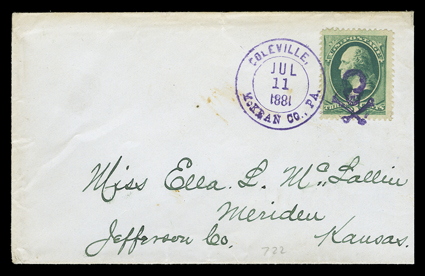 COLEVILLE,
JUL
11
1881
McKEAN CO., PA.
Miss Ella. L. McLallin
Meriden
Jefferson Co. Kansas.
722